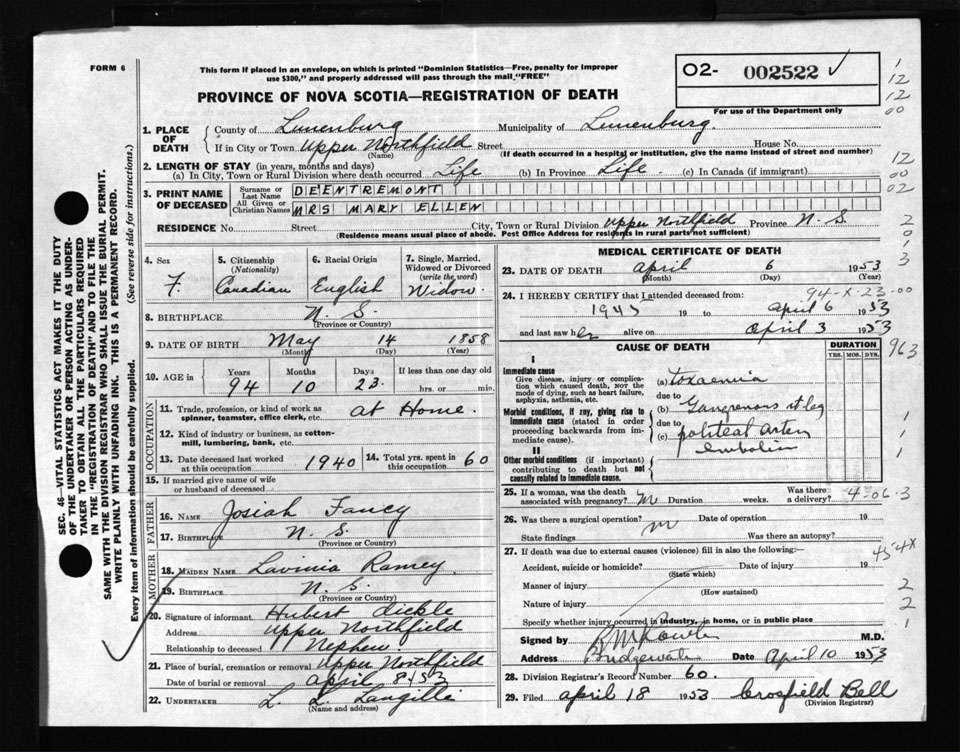 FORM 6
This form if placed in an envelope, on which is printed "Dominion Statistics—Free, penalty for improper
use $300," and properly addressed will pass through the mail "FREE"
PROVINCE OF NOVA SCOTIA—REGISTRATION OF DEATH
02- 002522
For use of the Department only
1
12
12
00
12
00
02
2
0
1
3
SEC. 46—VITAL STATISTICS ACT MAKES IT THE DUTY
OF THE UNDERTAKER OR PERSON ACTING AS UNDER-
TAKER TO OBTAIN ALL THE PARTICULARS REQUIRED
IN THE "REGISTRATION OF DEATH" AND TO FILE THE
SAME WITH THE DIVISION REGISTRAR WHO SHALL ISSUE THE BURIAL PERMIT.
WRITE PLAINLY WITH UNFADING INK. THIS IS A PERMANENT RECORD.
Every item of Information should be carefully supplied. (See reverse side for instructions.)
1. PLACE OF DEATH
County of Lunenburg Municipality of Lunenburg
If in City or Town Upper Northfield Street House No.
(Name) (If death occurred in a hospital or institution, give the name instead of street and number)
2. LENGTH OF STAY (in years, months and days)
(a) In City, Town or Rural Division where death occurred Life (b) In Province Life (c) In Canada (if immigrant)
3. PRINT NAME OF DECEASED
Surname or Last Name DEENTREMONT
All Given or Christian Names MRS MARY ELLEN
RESIDENCE No. Street City, Town or Rural Division Upper Northfield Province N. S.
(Residence means usual place of abode. Post Office Address for residents in rural parts not sufficient)
4. Sex
F.
5. Citizenship (Nationality)
Canadian
6. Racial Origin
English
7. Single, Married, Widowed or Divorced (write the word)
Widow
8. BIRTHPLACE N. S.
(Province or Country)
9. DATE OF BIRTH May 14 1858
(Month) (Day) (Year)
10. AGE in Years Months Days If less than one day old
94 10 23 hrs. or min.
OCCUPATION
11. Trade, profession, or kind of work as spinner, teamster, office clerk, etc. at Home.
12. Kind of industry or business, as cotton-mill, lumbering, bank, etc.
13. Date deceased last worked at this occupation 1940
14. Total yrs. spent in this occupation 60
15. If married give name of wife or husband of deceased
FATHER
16. NAME Josiah Fancy
17. BIRTHPLACE N. S.
(Province or Country)
MOTHER
18. MAIDEN NAME Lavinia Ramey
19. BIRTHPLACE N. S.
(Province or Country)
20. Signature of informant Hubert
Address Upper Northfield
Relationship to deceased Nephew
21. Place of burial, cremation or removal Upper Northfield
Date of burial or removal April 8/53
22. UNDERTAKER L. L. Langille
(Name and address)
MEDICAL CERTIFICATE OF DEATH
23. DATE OF DEATH April 6 1953
(Month) (Day) (Year)
94-X-23-00
24. I HEREBY CERTIFY that I attended deceased from:
1945 19 to April 6 1953
and last saw her alive on April 3 1953
963
CAUSE OF DEATH
DURATION
YRS. MOS. DYS.
I
Immediate cause
Give disease, injury or complication which caused death, not the mode of dying, such as heart failure, asphyxia, asthenia, etc.
(a) toxaemia
due to
Morbid conditions, if any, giving rise to immediate cause (stated in order proceeding backwards from immediate cause).
(b) Gangrenous rt leg
due to
(c) popliteal artery
embolism
II
Other morbid conditions (if important) contributing to death but not causally related to immediate cause.
1
1
25. If a woman, was the death associated with pregnancy? Duration weeks. Was there a delivery?
4-06-3
26. Was there a surgical operation? Date of operation 19
State findings Was there an autopsy?
27. If death was due to external causes (violence) fill in also the following:—
454X
Accident, suicide or homicide? Date of injury 19
(State which)
Manner of injury
(How sustained)
Nature of injury
Specify whether injury occurred in Industry, in home, or in public place
2
2
1
Signed by M.D.
Address Bridgewater Date April 10 1953
28. Division Registrar's Record Number 60.
29. Filed April 18 1953 Crosfield Bell
(Division Registrar)